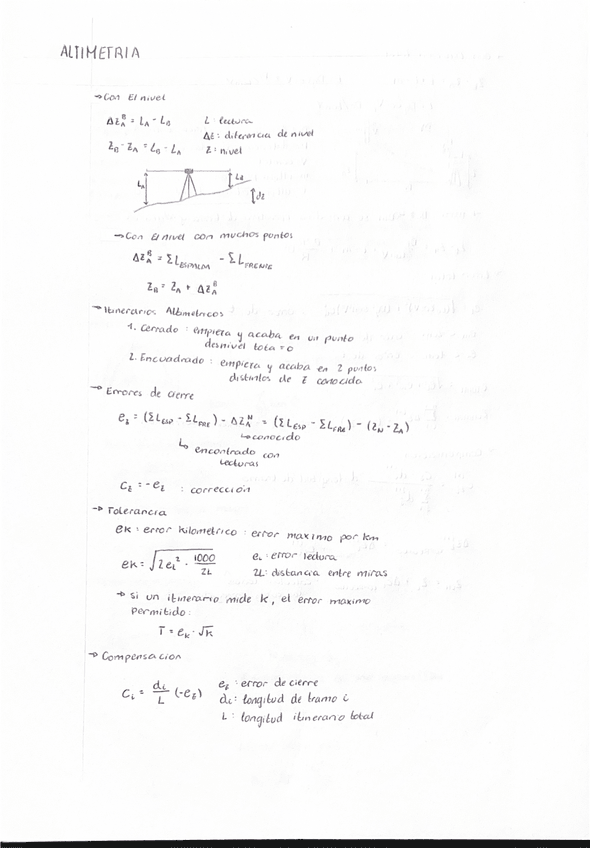 ALTIMETRIA
→ Con El nivel
ΔZ_A^B = L_A - L_B    L : lectura
Δz : diferencia de nivel
Z_B - Z_A = L_B - L_A    Z : nivel
L_A    L_B    dz
→ Con El nivel con muchos puntos
ΔZ_A^B = Σ L_ESPALDA - Σ L_FRENTE
Z_B = Z_A + ΔZ_A^B
→ Itinerarios Altimetricos
1. Cerrado : empieza y acaba en un punto
desnivel tota = 0
2. Encuadrado : empieza y acaba en 2 puntos
distintos de z conocido
→ Errores de cierre
e_z = (ΣL_ESP - ΣL_FRE) - ΔZ_A^N = (ΣL_ESP - ΣL_FRE) - (Z_N - Z_A)
↳ conocido
↳ encontrado con
lecturas
C_z = -e_z : corrección
→ Tolerancia
eK : error Kilometrico : error maximo por km
eK = √(2e_L² · 1000/2L)    e_L : error lectura
2L : distancia entre miras
→ si un itinerario mide K, el error maximo
permitido :
T = e_K · √K
→ Compensacion
C_i = d_i/L (-e_z)    e_z : error de cierre
d_i : longitud de tramo i
L : longitud itinerario total